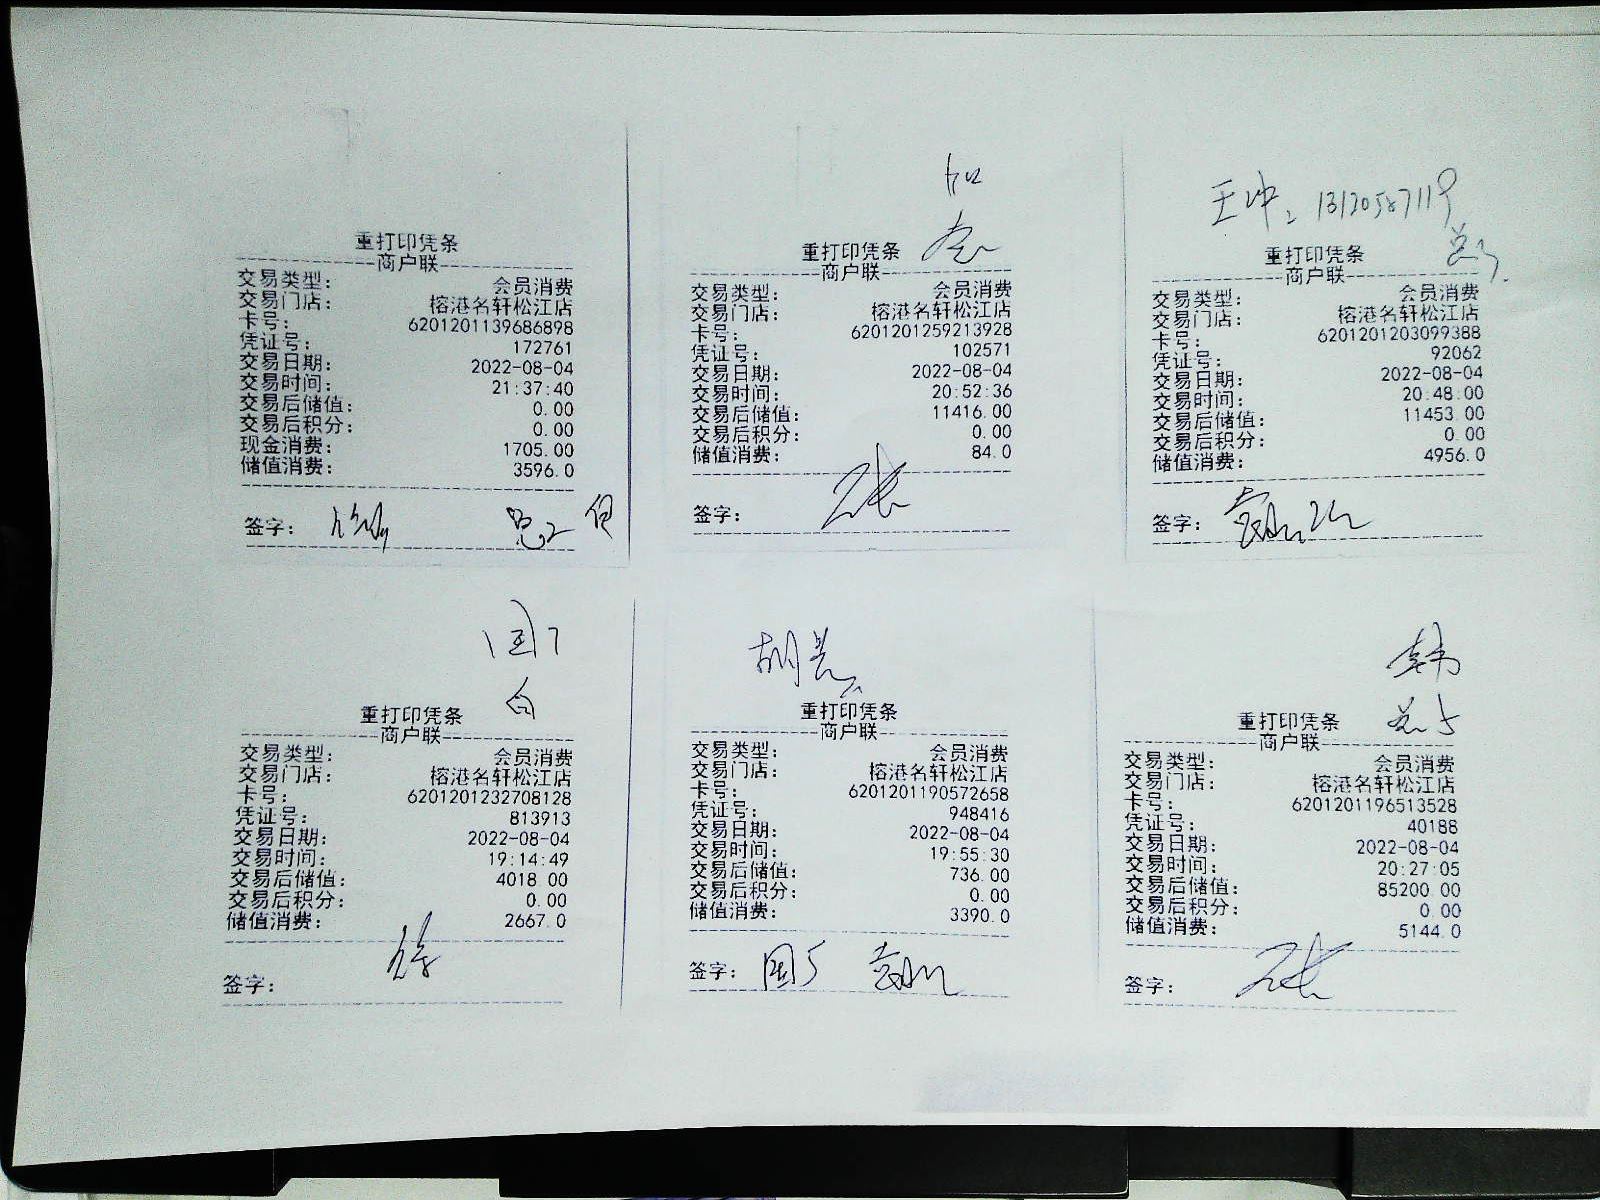 重打印凭条
商户联
交易类型: 会员消费
交易门店: 榕港名轩松江店
卡号: 6201201139686898
凭证号: 172761
交易日期: 2022-08-04
交易时间: 21:37:40
交易后储值: 0.00
交易后积分: 0.00
现金消费: 1705.00
储值消费: 3596.0
签字:
重打印凭条
商户联
交易类型: 会员消费
交易门店: 榕港名轩松江店
卡号: 6201201259213928
凭证号: 102571
交易日期: 2022-08-04
交易时间: 20:52:36
交易后储值: 11416.00
交易后积分: 0.00
储值消费: 84.0
签字:
13120587119
重打印凭条
商户联
交易类型: 会员消费
交易门店: 榕港名轩松江店
卡号: 6201201203099388
凭证号: 92062
交易日期: 2022-08-04
交易时间: 20:48:00
交易后储值: 11453.00
交易后积分: 0.00
储值消费: 4956.0
签字:
重打印凭条
商户联
交易类型: 会员消费
交易门店: 榕港名轩松江店
卡号: 6201201232708128
凭证号: 813913
交易日期: 2022-08-04
交易时间: 19:14:49
交易后储值: 4018 00
交易后积分: 0.00
储值消费: 2667.0
签字:
重打印凭条
商户联
交易类型: 会员消费
交易门店: 榕港名轩松江店
卡号: 6201201190572658
凭证号: 948416
交易日期: 2022-08-04
交易时间: 19:55:30
交易后储值: 736.00
交易后积分: 0.00
储值消费: 3390.0
签字:
韩
重打印凭条
商户联
交易类型: 会员消费
交易门店: 榕港名轩松江店
卡号: 6201201196513528
凭证号: 40188
交易日期: 2022-08-04
交易时间: 20:27:05
交易后储值: 85200.00
交易后积分: 0.00
储值消费: 5144.0
签字: